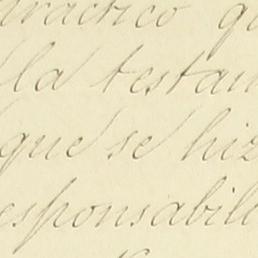 practico q
lla testam
que se hiz
esponsabili